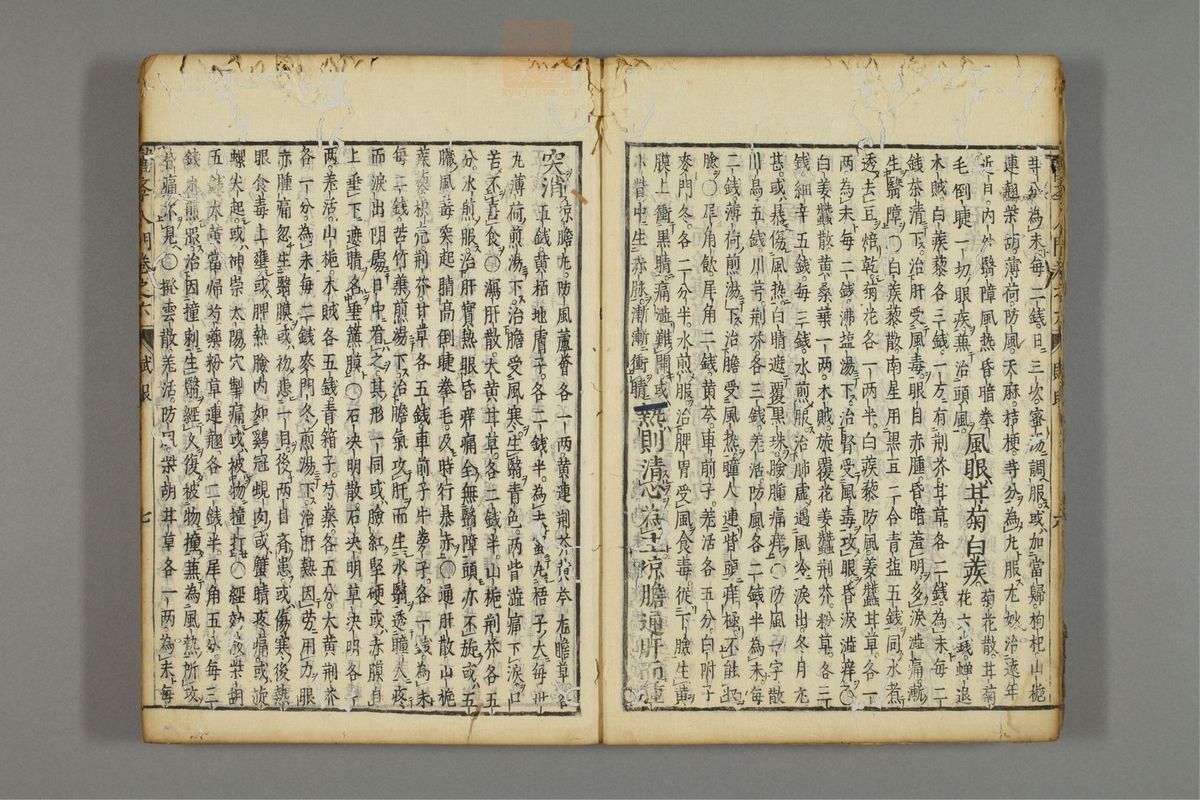 芎分爲末毎二錢日三次蜜湯調服或加當歸枸杞山梔
連翹柴胡薄荷防風天麻桔梗等分爲丸服尤妙治遠年
近日内外翳障風熱昏暗拳
毛倒睫一切眼疾兼治頭風
風眼甘菊白蒺
菊花散甘菊花六錢蟬退
木賊白蒺藜各三錢一方有荆芥甘草各二錢爲末毎二
錢茶清下治肝受風毒眼目赤腫昏暗羞明多淚澁痛漸
生翳障○白蒺藜散南星用黑豆二合青盐五錢同水煮
透去豆焙乾菊花各一兩半白蒺藜防風姜蠶甘草各一
兩爲末毎二錢沸盐湯下治腎受風毒攻眼昏淚澁痒○
白姜蠶散黄桑葉一兩木賊旋覆花姜蠶荆芥粉草各三
錢細辛五錢毎三錢水煎服治肺虛遇風冷淚出冬月尤
甚或損傷風熱白睛遮覆黒珠瞼腫痛痒○防風一字散
川烏五錢川芎荆芥各三錢羌活防風各二錢半爲末毎
二錢薄荷煎湯下治膽受風热瞳人連眥頭痒極不能收
瞼○犀角飲犀角二錢黄芩車前子羌活各五分白附子
麥門冬各二分半水煎服治脾胃受風食毒從下瞼生黄
膜上衝黒睛痛澁難開或
小眥中生赤脉漸漸衝睛
熱則清心爲主凉膽通肝
突消
凉膽丸防風蘆薈各一兩黄連荆芥黄芩龙膽草各
五錢黄栢地膚子各二錢半爲末蜜丸梧子大毎卄
九薄荷煎湯下治膽受風寒生翳青色兩眥澁痛下淚口
苦不喜食○瀉肝散大黄甘草各二錢半山梔荆芥各五
錢水煎服治肝實熱眼昏痒痛全無翳障頭亦不旋或五
臟風毒突起睛高倒睫拳毛及時行暴赤○通肝散山梔
蒺藜枳壳荆芥甘草各五錢車前子牛蒡子各一錢爲末
毎二錢苦竹葉煎湯下治膽氣攻肝而生水翳透瞳人疼
而淚出閉處目中看之其形一同或瞼紅堅硬或赤膜自
上垂下遮睛名垂簾膜○石决明散石决明草决明各一
兩羗活山梔木賊各五錢青箱子芍藥各五分大黄荆芥
各一分爲末毎二錢麥門冬煎湯下治肝熱因勞用力眼
赤腫痛忽生翳膜或初患一目後兩目齊患或傷寒後熱
眼食毒上壅或脾熱瞼内如鷄冠蜆肉或蟹睛疼痛或旋
螺尖起或神祟太陽穴掣痛或被物撞打○經効散柴胡
五錢大黄當歸芍藥粉草連翹各二錢半犀角五分毎三
錢水煎服治因撞刺生翳經久復被物撞兼爲風熱所或
昏痛不見○撥雲散羌活防風柴胡甘草各一兩爲末毎